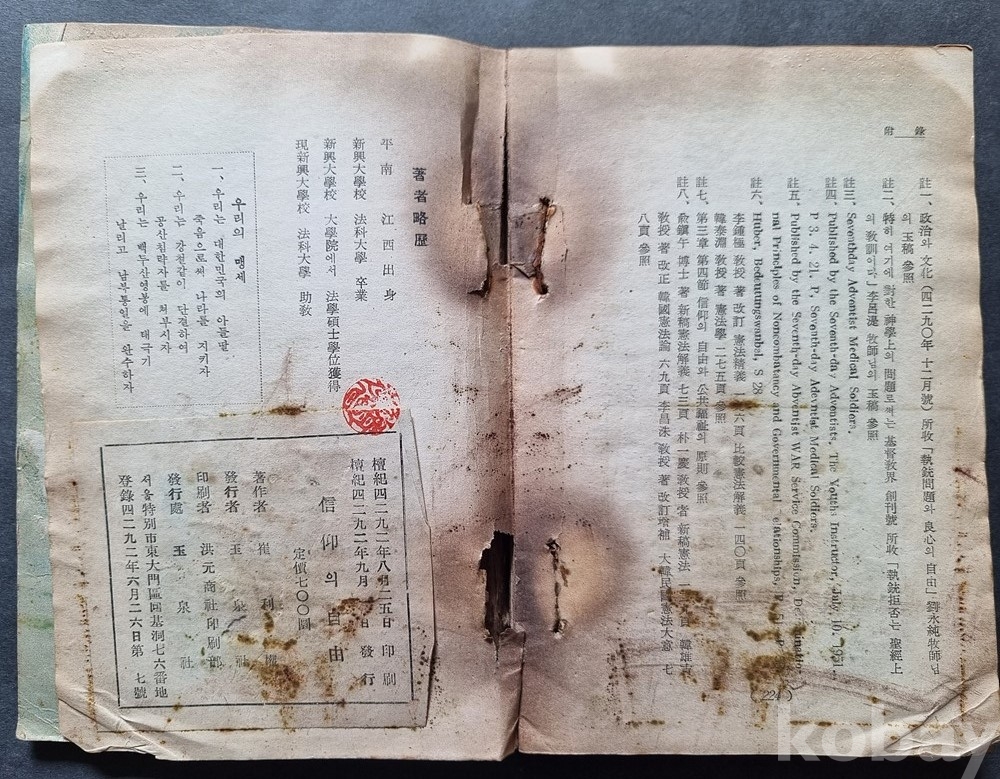 附 錄
註一、政治와 文化 (四二九〇年 十二月號) 所收「執銃問題와 良心의 自由」劉永純牧師님
의 玉稿 參照
註二、特히 여기에 對한 神學上의 問題로써는 基督敎界 創刊號 所收「執銃拒否는 聖經上
의 敎訓이다」李呂湜 牧師님의 玉稿 參照
註三、Seventhday Adventist Medical Soldiers.
註四、Published by the Seventh-day Adventists. The Youths Instructor, July, 10. 1951.
P 3. 4. 21. P, Seventh-day Adevntist Medical Soldiers.
註五、Published by the Seventh-day Abventist WAR Service Commission,
nal Principles of Noncombatancy and Governmental
註六、Huber, Bedeutungswandel, S 28
李鍾極 敎授 著 改訂 憲法精義 一一六頁 比較憲法解義 一四〇頁 參照
韓泰淵 敎授 著 憲法學 一七五頁 參照
註七、第三章 第四節 信仰의 自由와 公共福祉의 原則 參照
註八、兪鎭午 博士 著 新稿憲法解義 七三頁 朴一慶 敎授 著 新稿憲法 一一
敎授 著 改正 韓國憲法論 六九頁 李昌洙 敎授 著 改訂增補 大韓民國憲法大意 七
八頁 參照
(224)
著者略歷
平南 江西出身
新興大學校 法科大學 卒業
新興大學校 大學院에서 法學碩士學位獲得
現新興大學校 法科大學 助敎
우리의 맹세
一、우리는 대한민국의 아들딸
죽음으로써 나라를 지키자
二、우리는 강철같이 단결하여
공산침략자를 쳐부시자
三、우리는 백두산영봉에 태극기
날리고 남북통일을 완수하자
檀紀四二九二年八月二五日 印刷
檀紀四二九二年九月一日 發行
信仰의自由
定價七〇〇圜
著作者 崔
發行者 玉泉社
印刷者 洪元商社印刷部
發行處 玉泉社
서울特別市東大門區回基洞七六番地
登錄四二九二年六月二六日第 七號
kobay